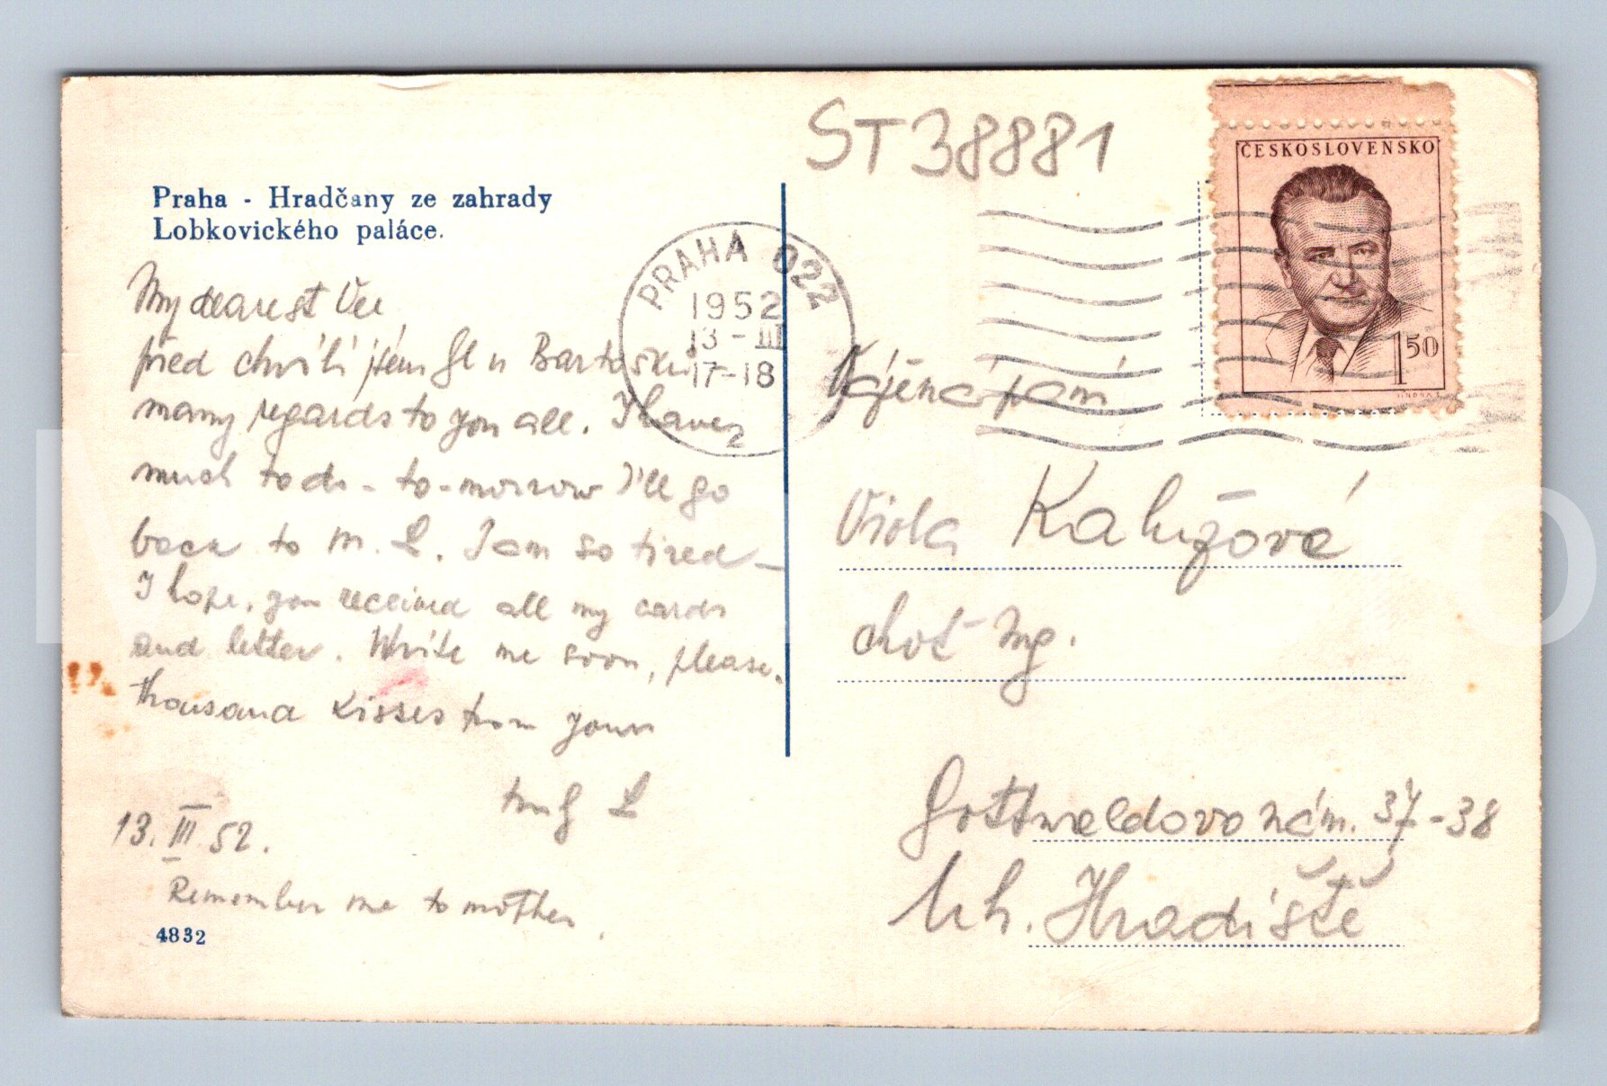 ST38881
ČESKOSLOVENSKO
150
Praha - Hradčany ze zahrady
Lobkovického paláce.
PRAHA 022
1952
13-III
17-18
2
My dearest
před chvílí jsem u
many regards to you all. I have
much to do - to-morrow I'll go
back to M. L. I am so tired -
I hope, you received all my cards
and letter. Write me soon, please.
thousand kisses from your
L
13. III. 52.
Remember me to mother.
4832
Vážená paní
Viola Kalužová
choť Ing.
Gottwaldovo nám. 37-38
Uh. Hradiště